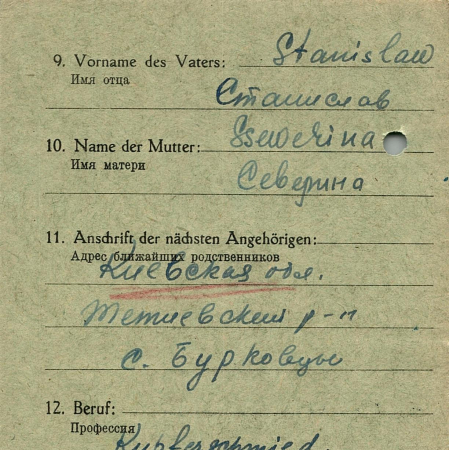 9. Vorname des Vaters: Stanislaw
Имя отца
Станислав
10. Name der Mutter: Ssewerina
Имя матери
Северина
11. Anschrift der nächsten Angehörigen:
Адрес ближайших родственников
Киевская обл.
Тетиевский р-н
с. Бурковцы
12. Beruf:
Профессия
Kupferschmied.